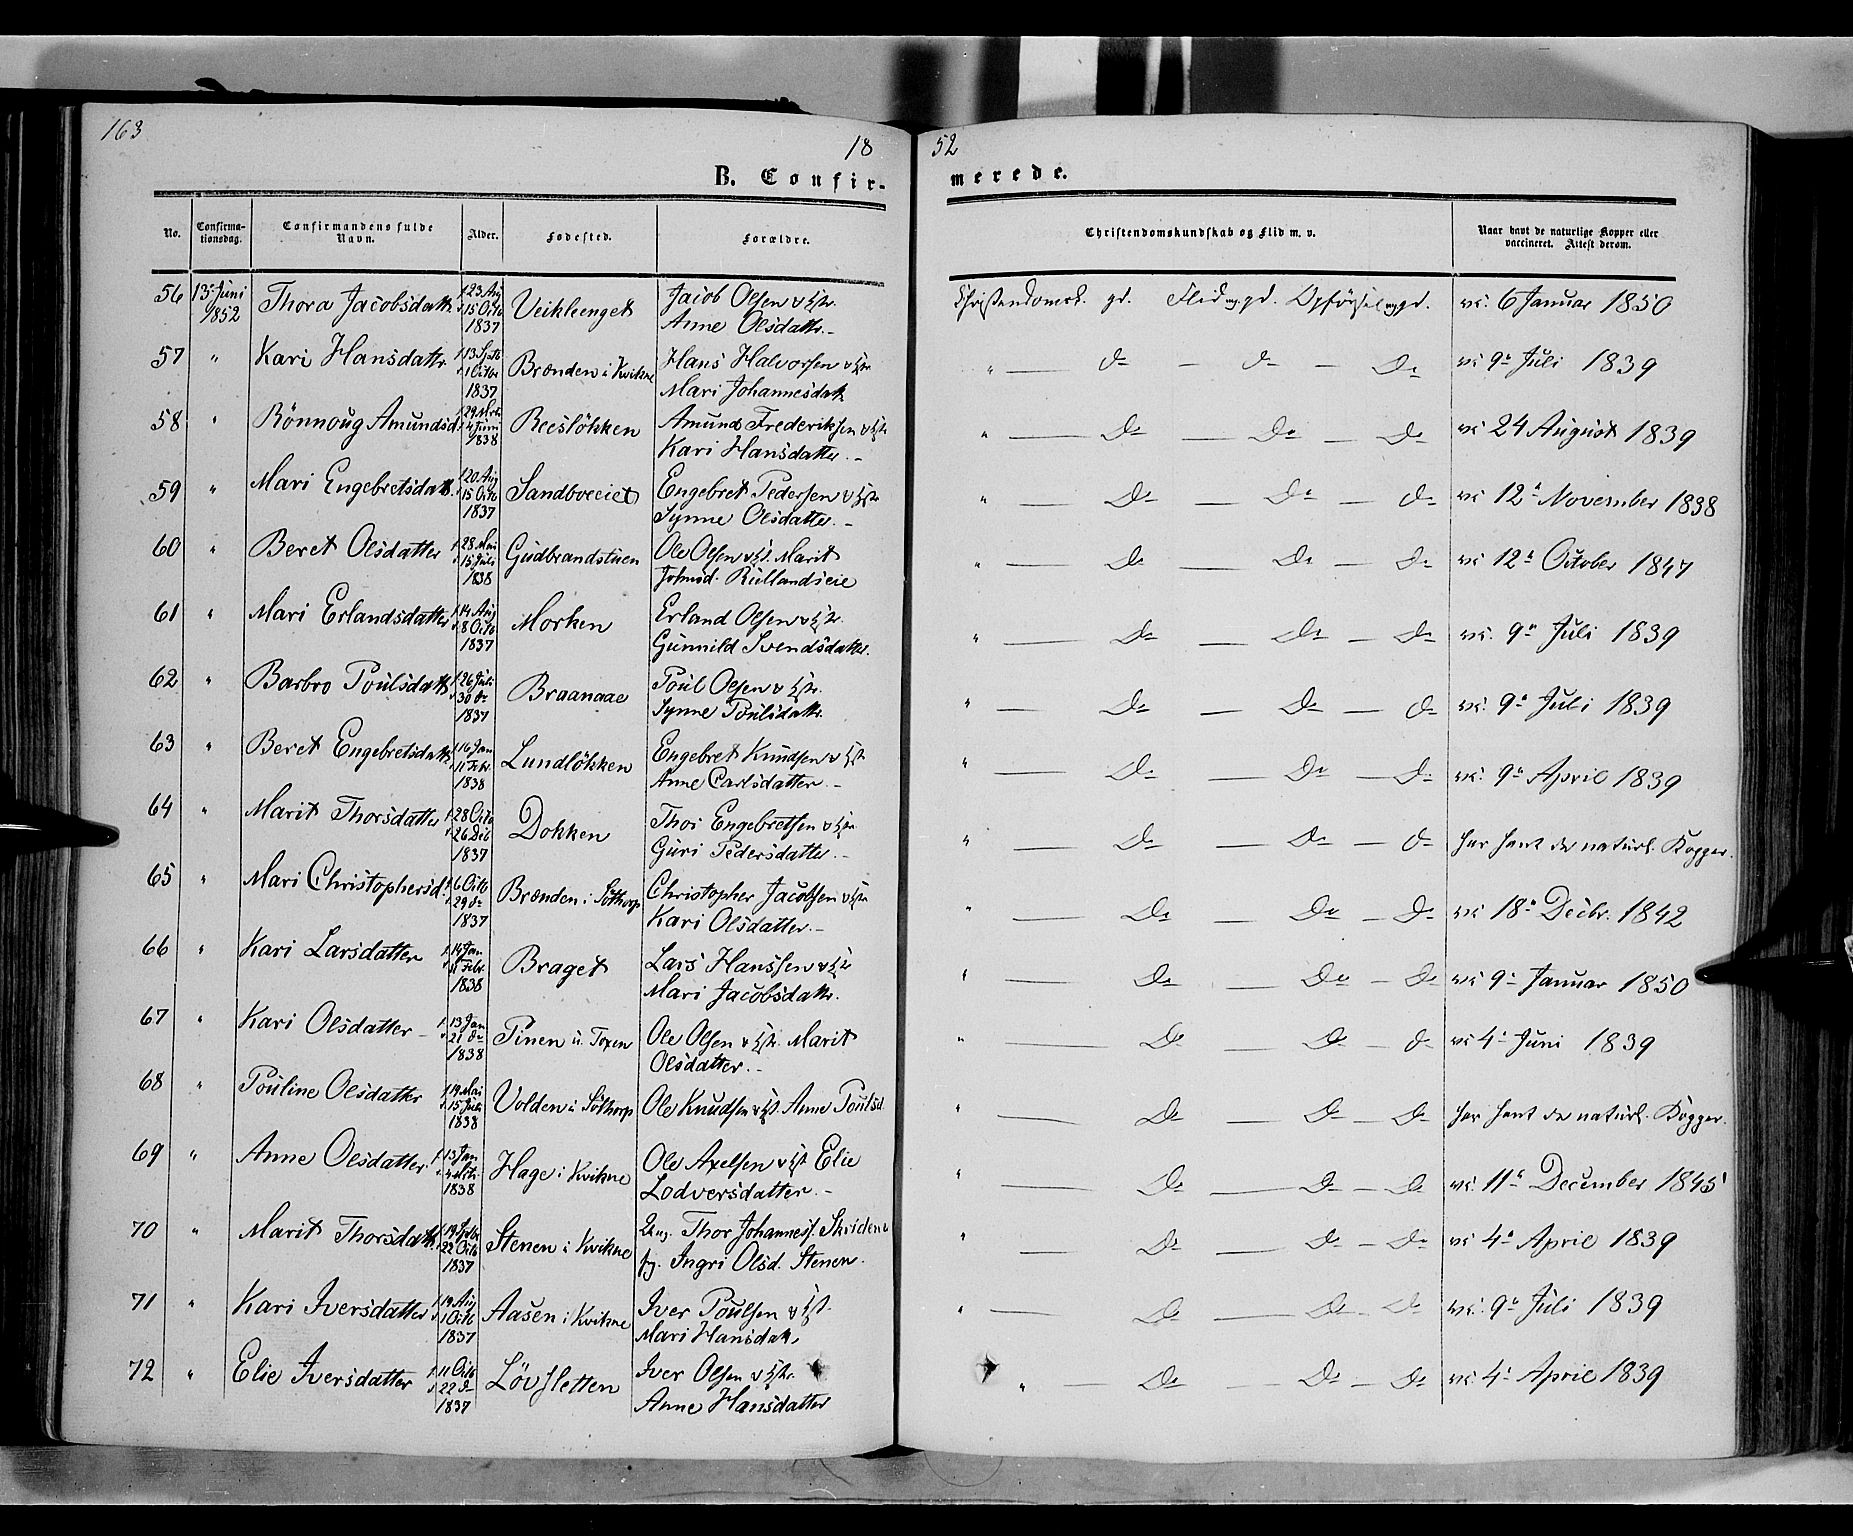 163
18 52
B. Confir- merede.
No. Confirma- tionsdag. Confirmandens fulde Navn. Alder. Fødested. Forældre. Christendomskundskab og Flid m. v. Naar havt de naturlige Kopper eller vaccineret. Attest derom.
56 13. Juni 1852 Thora Jacobsdatt. f. 23 Aug d. 15 Octb 1837 Veiklenget Jacob Olsen v H. Anne Olsdatter.- Christendomsk. gd. Flid mg. gd. Opførsel mg gd. vc. 6 Januar 1850
57 " Kari Hansdattr 13 Septb 1 Octbr 1837 Brænden i Kvikne Hans Halvorsen Mari Johannesdatt. " — do — do — Do vc 9de Juli 1839
58 " Rönnoug Amundsd. 29 4 Juni 1838 Reeslökken Amund Frederiksen Kari Hansdatter.- " — Do — Do — Do vc 24 August 1839
59 " Mari Engebretsdatt. 20 Aug 15 Octb 1837 Sandboeiet Engebret Pedersen Synne Olsdatter.- " — Do — Do — do vc 12te November 1838
60 " Beret Olsdatter 28 Mai 15 Juli 1838 Gudbrandstuen Ole Olsen Marit Johnsd. Rullandseie " — Do — Do — do vc 12te October 1847
61 " Mari Erlandsdatter 14 Aug 8 Octb 1837 Morken Erland Olsen Gunnild Svendsdatter. " — Do — Do — Do vc. 9de Juli 1839
62 " Barbro Poulsdatt. 26 Juli 30 do 1837 Braanaae Poul Olsen Synne Poulsdattr. " — Do — Do — do vc. 9de Juli 1839
63 " Beret Engebretsdatt. 16 Jan 11 Febr. 1838 Lundlökken Engebret Knudsen Anne Carlsdatter.- " — Do — Do — Do vc. 9de April 1839
64 " Marit Thorsdatter 28 Octb 26 Dcb 1837 Dokken Thor Engebretsen Guri Pedersdatter.- " — Do — Do — do har havt de naturl. Kopper.
65 " Mari Christophersd. 6 Octb 29 do 1837 Brænden i Sothorp Christopher Jacobsen Kari Olsdatter.- " — Do — Do — Do vc 18de Decbr. 1842
66 " Kari Larsdatter 14 Jan 11 Febr. 1838 Braget Lars Hanssen Mari Jacobsdattr. " — Do — Do — Do vc 9de Januar 1850
67 " Kari Olsdatter 13 Jan 21 do 1838 Pinen u. Toxen Ole Olsen Marit Olsdatter.- " — Do — Do — do vc 4de Juni 1839
68 " Pouline Olsdatter 19 Mai 15 Juli 1838 Volden i Sothorp Ole Knudsen Anne Poulsd. " — Do — Do — Do har havt de naturl. Kopper.
69 " Anne Olsdatter 13 Jan 1838 Hage i Kvikne Ole Axelsen Elie Lodversdatter.- " — Do — Do — Do vc. 11te December 1845
70 " Marit Thorsdatt. 22 Octb 1837 Stenen i Kvikne Ukg. Thor Johannesf. Skriden pg. Ingri Olsd. Stenen. " — Do — Do — Do vc 4de April 1839
71 " Kari Iversdatter 19 Aug 1 Octb 1837 Aasen i Kvikne Iver Poulsen Mari Hansdatt. " — Do — Do — Do vc. 9de Juli 1839
72 " Elie Iversdatter 11 Octb 22 do 1837 Lövsletten Iver Olsen Anne Hansdatter " — Do — Do — Do vc. 4de April 1839